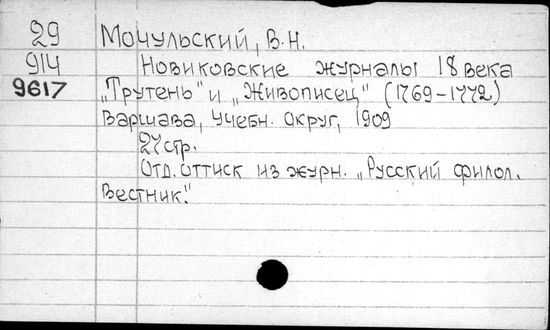 29 Мочульский, В.Н.
914 Новиковские журналы 18 века
9617 „Трутень" и „Живописец" (1769-1772)
Варшава, Учебн. Округ, 1909
27 стр.
Отд. оттиск из журн. „Русский филол.
Вестник."